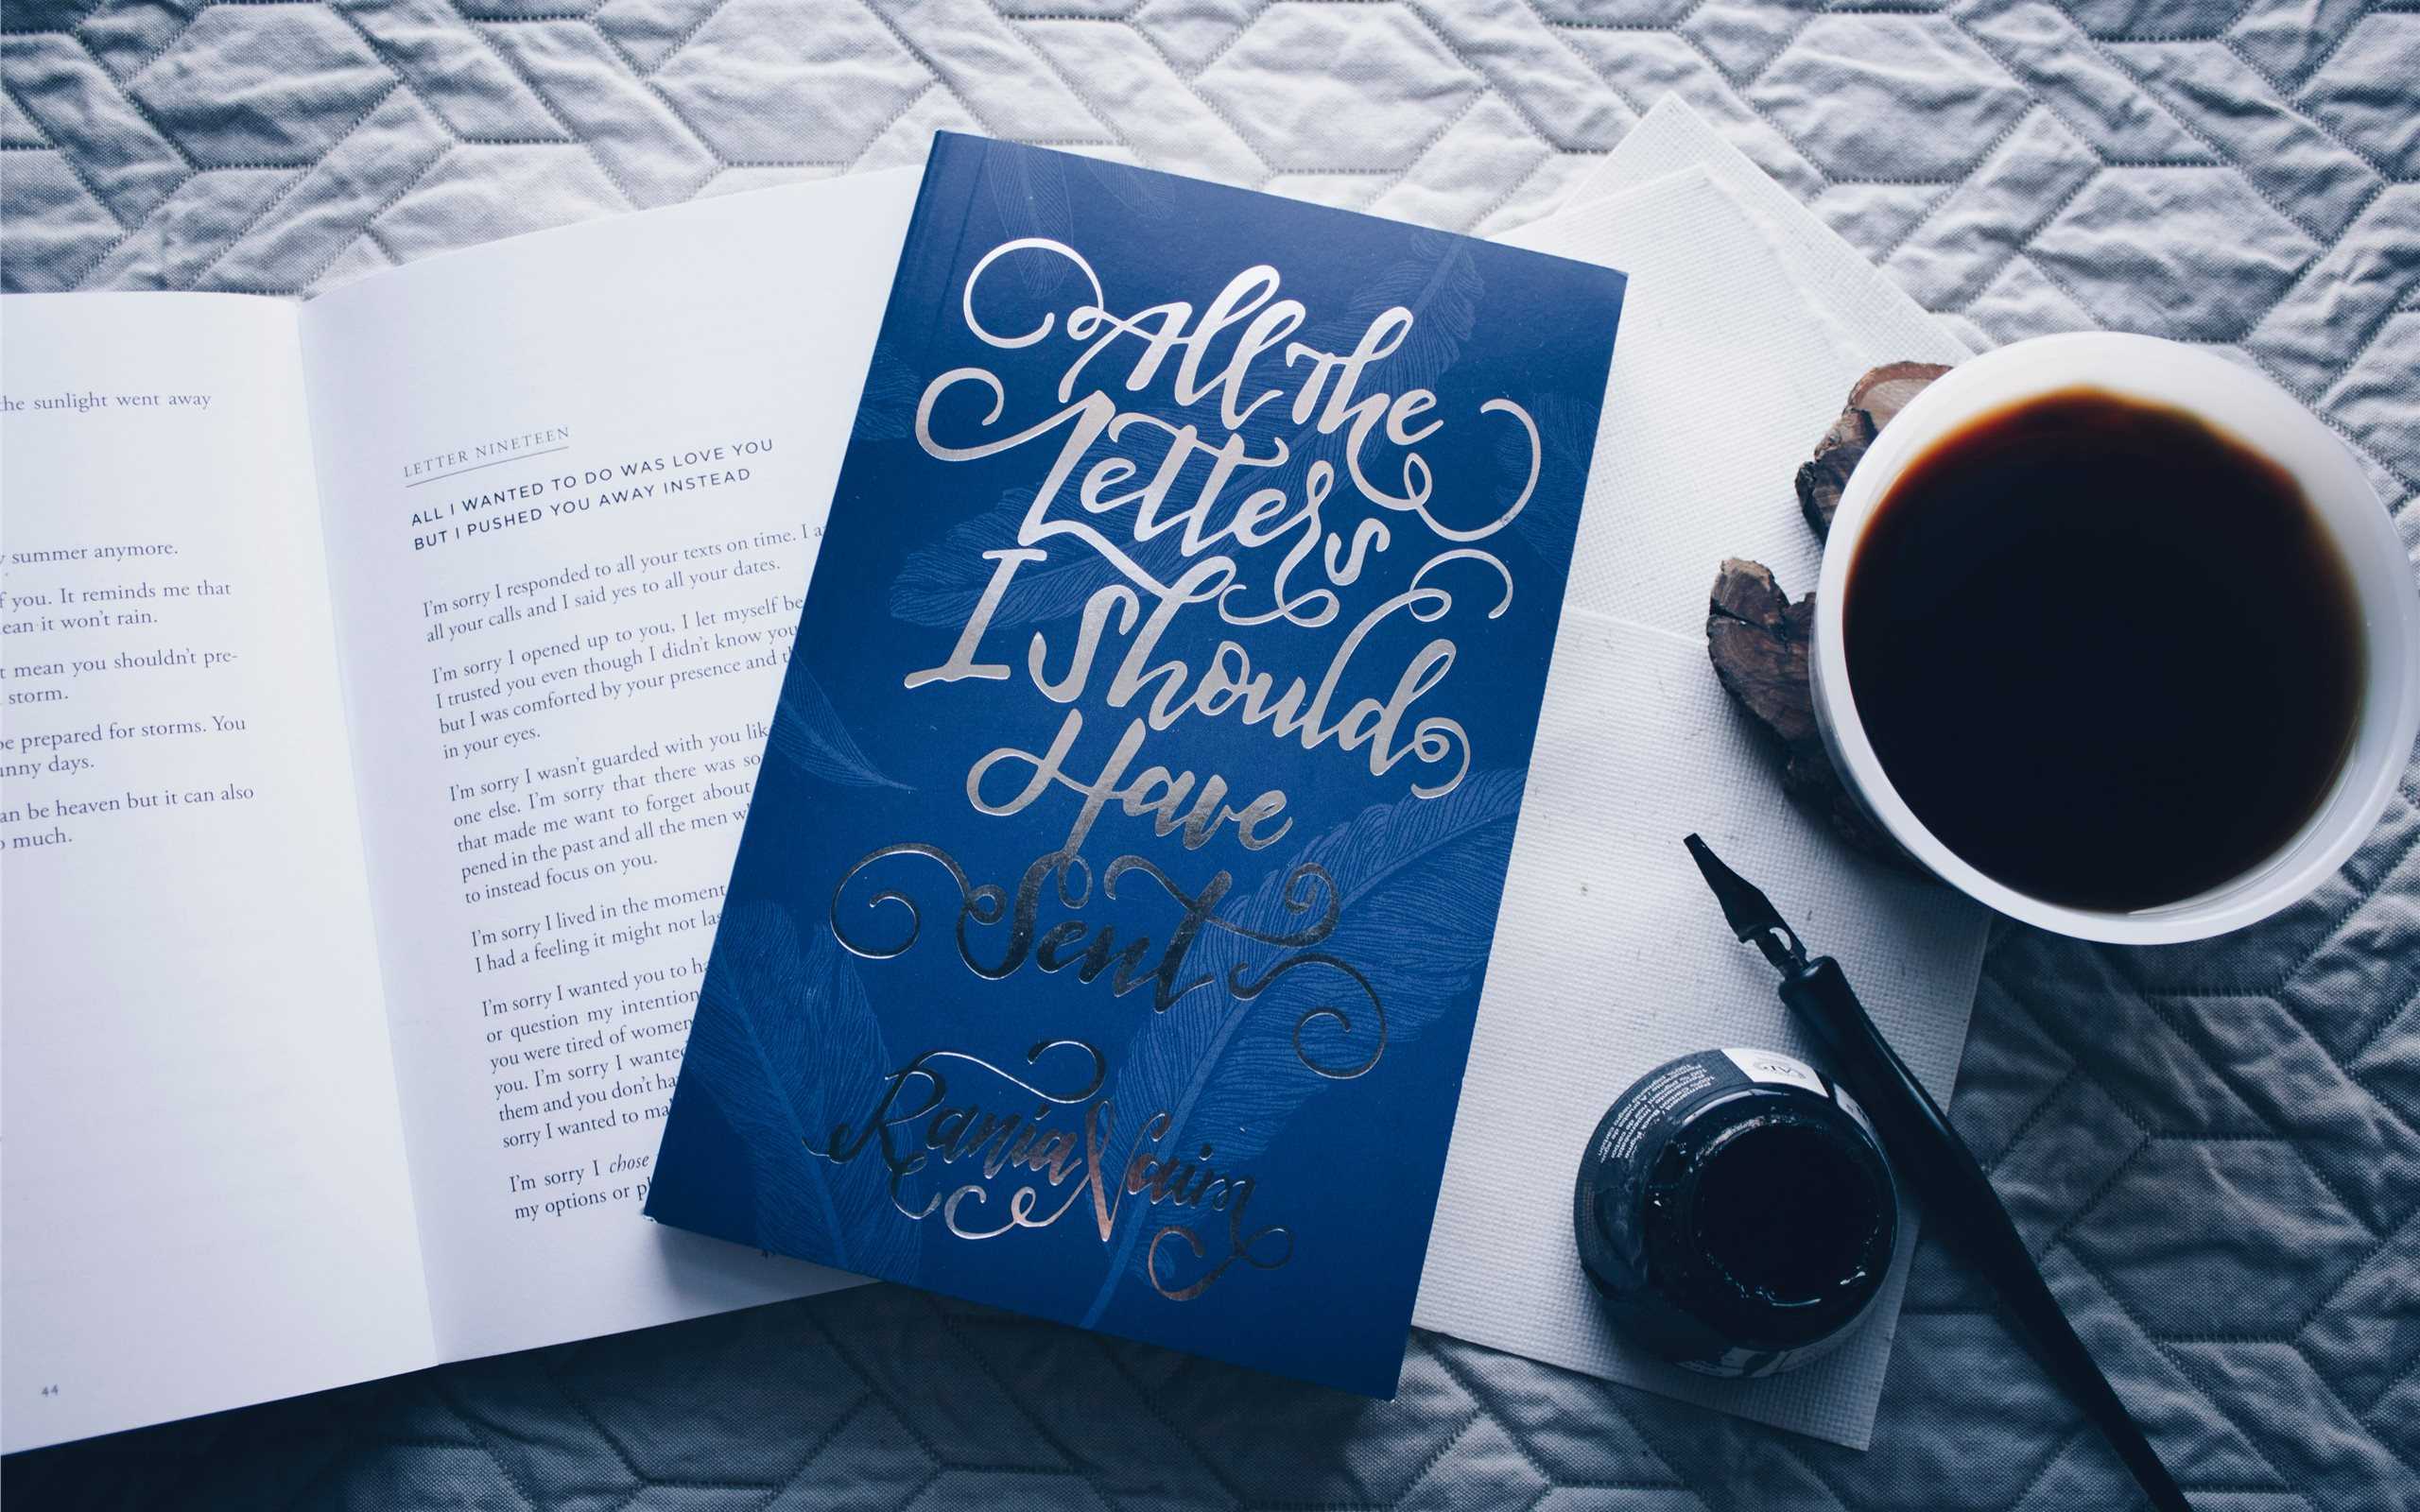 the sunlight went away
summer anymore.
you. It reminds me that
it won't rain.
mean you shouldn't pre-
storm.
prepared for storms. You
days.
be heaven but it can also
much.
44
LETTER NINETEEN
ALL I WANTED TO DO WAS LOVE YOU
BUT I PUSHED YOU AWAY INSTEAD
I'm sorry I responded to all your texts on time. I
all your calls and I said yes to all your dates.
I'm sorry I opened up to you, I let myself be
I trusted you even though I didn't know you
but I was comforted by your presence and
in your eyes.
I'm sorry I wasn't guarded with you
one else. I'm sorry that there was
that made me want to forget about
pened in the past and all the men
to instead focus on you.
I'm sorry I lived in the moment
I had a feeling it might not
I'm sorry I wanted you to
or question my
you were tired of women
you. I'm sorry I
them and you don't
sorry I wanted to
I'm sorry I chose
my options or
All The
Letters
I Should
Have
Sent
Rania Naim